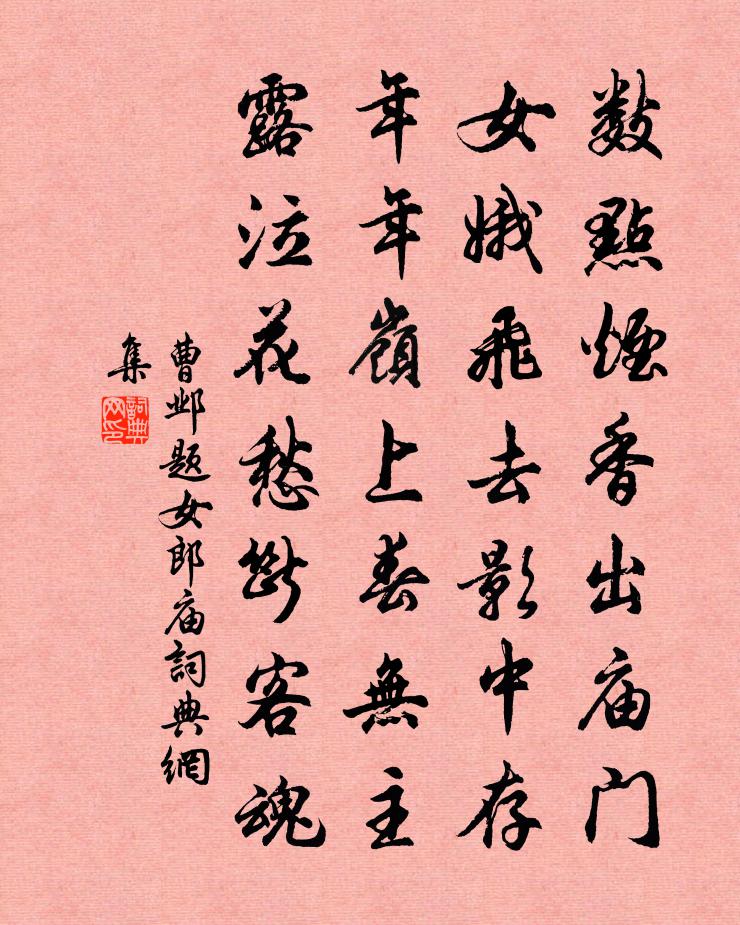 数點煙香出庙门
女娥飛去影中存
年年嶺上春無主
露泣花愁斷客魂
曹邺题女郎庙詞典網
集
詞典
网印